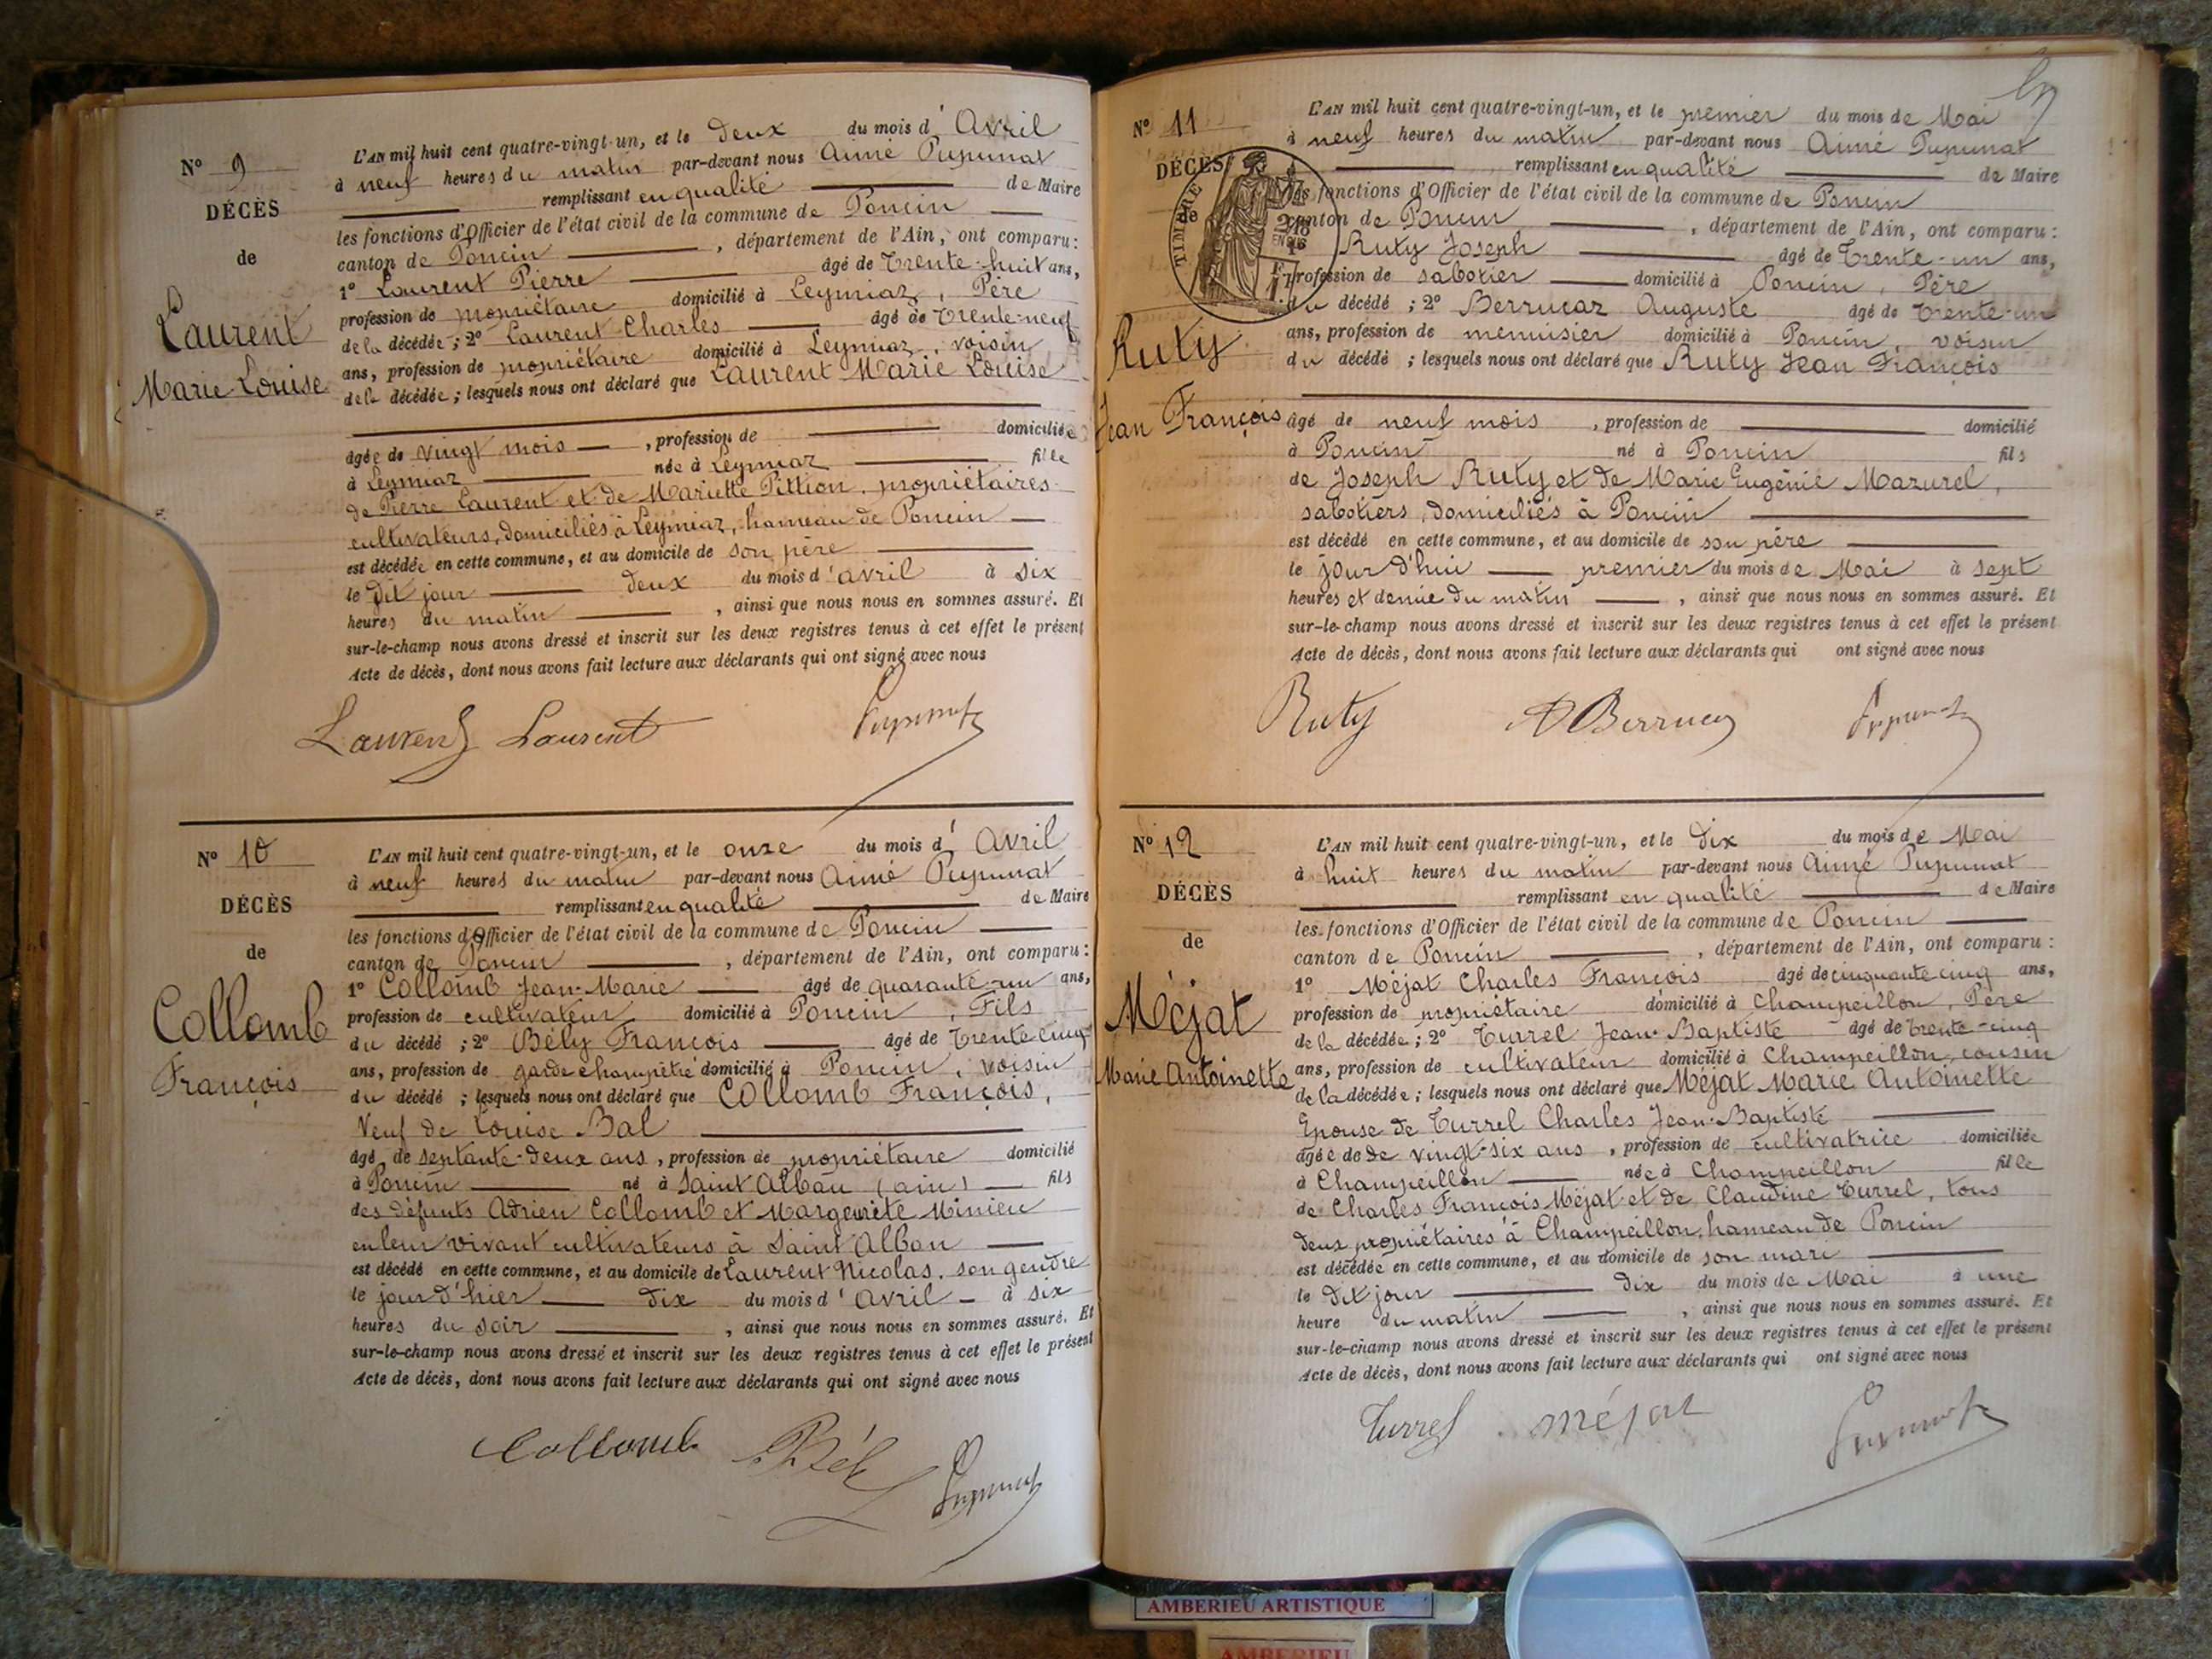 N° 9
DÉCÈS
de
Laurent
Marie Louise
L'AN mil huit cent quatre-vingt-un, et le Deux du mois d'Avril
à neuf heures du matin par-devant nous Aimé Pupunat
remplissant en qualité de Maire
les fonctions d'Officier de l'état civil de la commune de Poncin
canton de Poncin, département de l'Ain, ont comparu :
1° Laurent Pierre âgé de Trente-huit ans,
profession de propriétaire domicilié à Leymiaz, Père
de la décédée ; 2° Laurent Charles âgé de Trente-neuf
ans, profession de propriétaire domicilié à Leymiaz, voisin
de la décédée ; lesquels nous ont déclaré que Laurent Marie Louise
âgée de vingt mois, profession de domiciliée
à Leymiaz née à Leymiaz fille
de Pierre Laurent et de Mariette Pittion, propriétaires
cultivateurs, domiciliés à Leymiaz, hameau de Poncin
est décédée en cette commune, et au domicile de son père
le dit jour deux du mois d'avril à six
heures du matin, ainsi que nous nous en sommes assuré. Et
sur-le-champ nous avons dressé et inscrit sur les deux registres tenus à cet effet le présent
Acte de décès, dont nous avons fait lecture aux déclarants qui ont signé avec nous
Laurent Laurent Pupunat
N° 10
DÉCÈS
de
Collomb
François
L'AN mil huit cent quatre-vingt-un, et le onze du mois d'Avril
à neuf heures du matin par-devant nous Aimé Pupunat
remplissant en qualité de Maire
les fonctions d'Officier de l'état civil de la commune de Poncin
canton de Poncin, département de l'Ain, ont comparu :
1° Collomb Jean-Marie âgé de quarante-un ans,
profession de cultivateur domicilié à Poncin, Fils
du décédé ; 2° Bély François âgé de Trente cinq
ans, profession de garde champêtre domicilié à Poncin, voisin
du décédé ; lesquels nous ont déclaré que Collomb François,
Veuf de Louise Bal
âgé de septante-deux ans, profession de propriétaire domicilié
à Poncin né à Saint Alban (ain) fils
des défunts Adrien Collomb et Margeurete Minieu
en leur vivant cultivateurs à Saint Alban
est décédé en cette commune, et au domicile de Laurent Nicolas, son gendre
le jour d'hier dix du mois d'Avril à six
heures du soir, ainsi que nous nous en sommes assuré. Et
sur-le-champ nous avons dressé et inscrit sur les deux registres tenus à cet effet le présent
Acte de décès, dont nous avons fait lecture aux déclarants qui ont signé avec nous
Collomb Bély Pupunat
N° 11
DÉCÈS
de
TIMBRE
Ruty
Jean François
L'AN mil huit cent quatre-vingt-un, et le premier du mois de Mai
à neuf heures du matin par-devant nous Aimé Pupunat
remplissant en qualité de Maire
les fonctions d'Officier de l'état civil de la commune de Poncin
canton de Poncin, département de l'Ain, ont comparu :
1° Ruty Joseph âgé de Trente-un ans,
profession de sabotier domicilié à Poncin, Père
du décédé ; 2° Berrucaz Auguste âgé de Trente-un
ans, profession de menuisier domicilié à Poncin, voisin
du décédé ; lesquels nous ont déclaré que Ruty Jean François
âgé de neuf mois, profession de domicilié
à Poncin né à Poncin fils
de Joseph Ruty et de Marie Eugénie Mazurel,
sabotiers, domiciliés à Poncin
est décédé en cette commune, et au domicile de son père
le jour d'hui premier du mois de Mai à sept
heures et demie du matin, ainsi que nous nous en sommes assuré. Et
sur-le-champ nous avons dressé et inscrit sur les deux registres tenus à cet effet le présent
Acte de décès, dont nous avons fait lecture aux déclarants qui ont signé avec nous
Ruty A Berrucaz Pupunat
N° 12
DÉCÈS
de
Méjat
Marie Antoinette
L'AN mil huit cent quatre-vingt-un, et le Dix du mois de Mai
à huit heures du matin par-devant nous Aimé Pupunat
remplissant en qualité de Maire
les fonctions d'Officier de l'état civil de la commune de Poncin
canton de Poncin, département de l'Ain, ont comparu :
1° Méjat Charles François âgé de cinquante cinq ans,
profession de propriétaire domicilié à Champeillon, Père
de la décédée ; 2° Turrel Jean-Baptiste âgé de trente-cinq
ans, profession de cultivateur domicilié à Champeillon, cousin
de la décédée ; lesquels nous ont déclaré que Méjat Marie Antoinette
Epouse de Turrel Charles Jean-Baptiste
âgée de de vingt-six ans, profession de cultivatrice domiciliée
à Champeillon née à Champeillon fille
de Charles François Méjat et de Claudine Turrel, tous
deux propriétaires à Champeillon, hameau de Poncin
est décédée en cette commune, et au domicile de son mari
le dit jour dix du mois de Mai à une
heure du matin, ainsi que nous nous en sommes assuré. Et
sur-le-champ nous avons dressé et inscrit sur les deux registres tenus à cet effet le présent
Acte de décès, dont nous avons fait lecture aux déclarants qui ont signé avec nous
Turrel Méjat Pupunat
AMBERIEU ARTISTIQUE
AMBERIEU